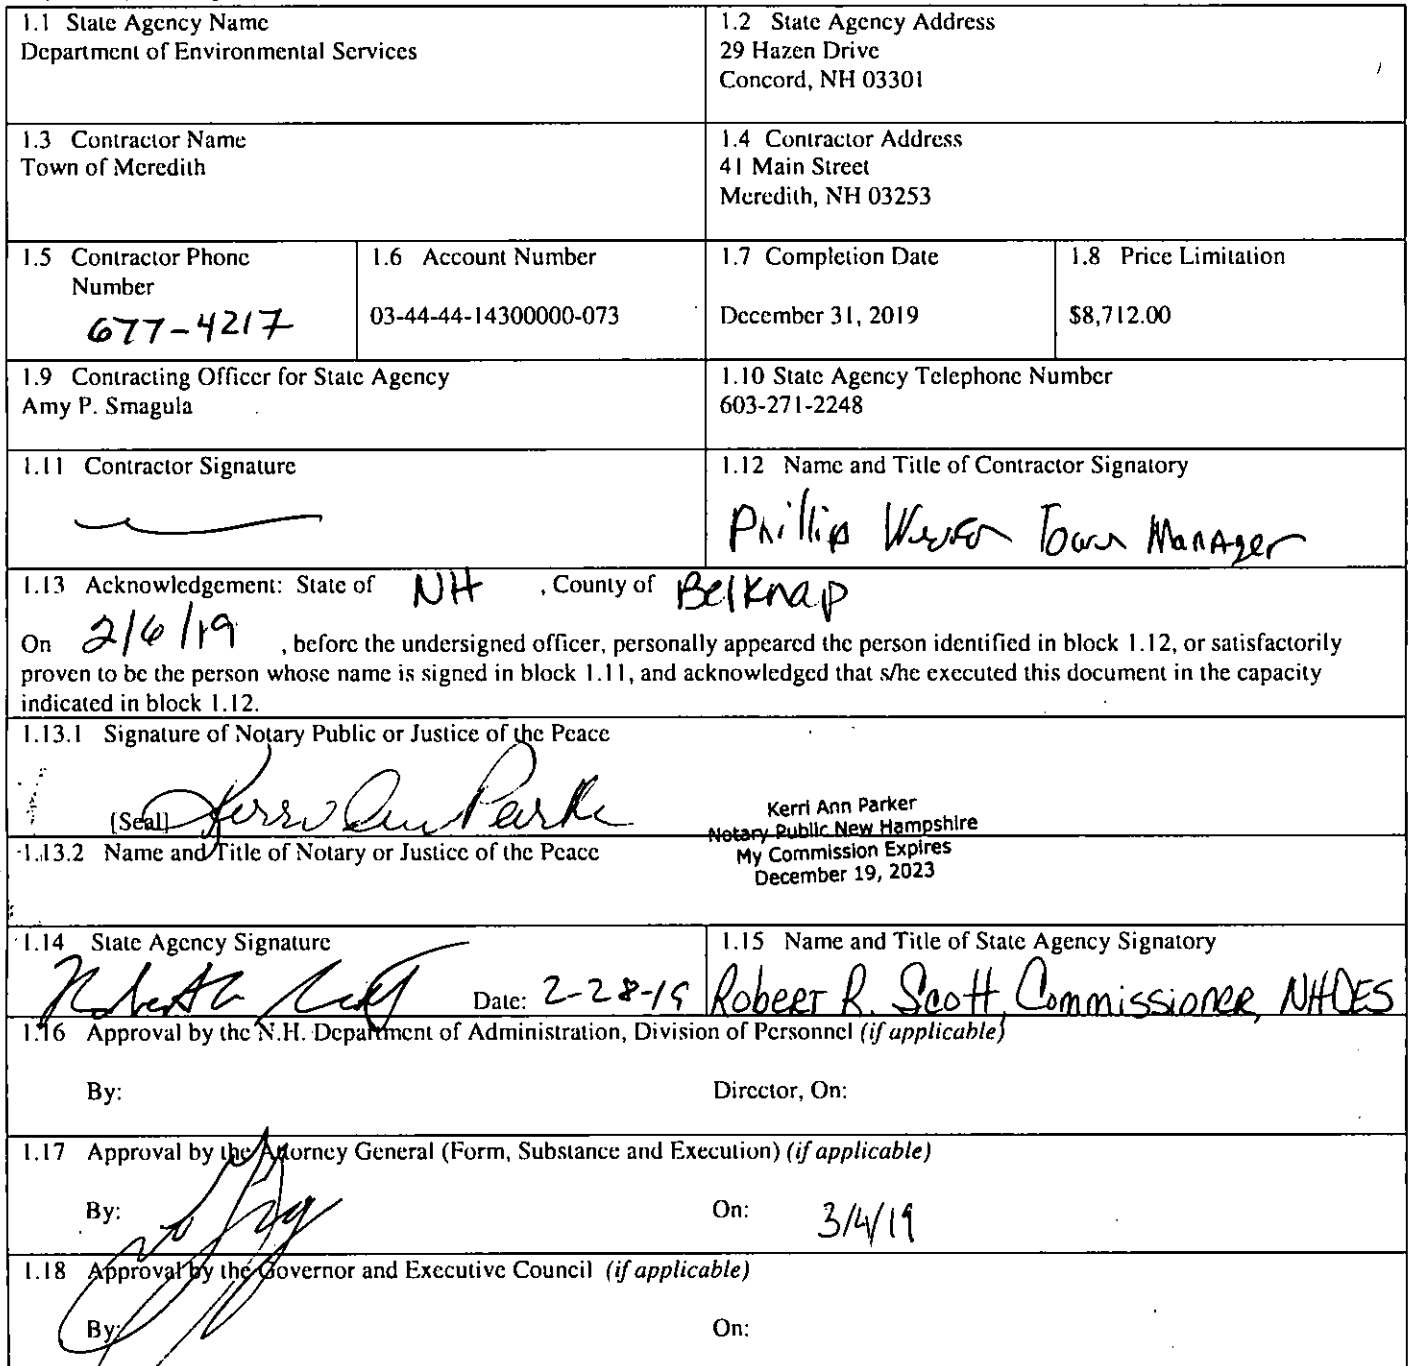 1.1 State Agency Name
Department of Environmental Services
1.2 State Agency Address
29 Hazen Drive
Concord, NH 03301
1.3 Contractor Name
Town of Meredith
1.4 Contractor Address
41 Main Street
Meredith, NH 03253
1.5 Contractor Phone
Number
677-4217
1.6 Account Number
03-44-44-14300000-073
1.7 Completion Date
December 31, 2019
1.8 Price Limitation
$8,712.00
1.9 Contracting Officer for State Agency
Amy P. Smagula
1.10 State Agency Telephone Number
603-271-2248
1.11 Contractor Signature
1.12 Name and Title of Contractor Signatory
Phillip Town Manager
1.13 Acknowledgement: State of NH , County of Belknap
On 2/6/19 , before the undersigned officer, personally appeared the person identified in block 1.12, or satisfactorily
proven to be the person whose name is signed in block 1.11, and acknowledged that s/he executed this document in the capacity
indicated in block 1.12.
1.13.1 Signature of Notary Public or Justice of the Peace
[Seal] Kerri Ann Parker
Kerri Ann Parker
Notary Public New Hampshire
My Commission Expires
December 19, 2023
1.13.2 Name and Title of Notary or Justice of the Peace
1.14 State Agency Signature
Date: 2-28-19
1.15 Name and Title of State Agency Signatory
Robert R. Scott, Commissioner, NHDES
1.16 Approval by the N.H. Department of Administration, Division of Personnel (if applicable)
By: Director, On:
1.17 Approval by the Attorney General (Form, Substance and Execution) (if applicable)
By: On: 3/4/19
1.18 Approval by the Governor and Executive Council (if applicable)
By: On: